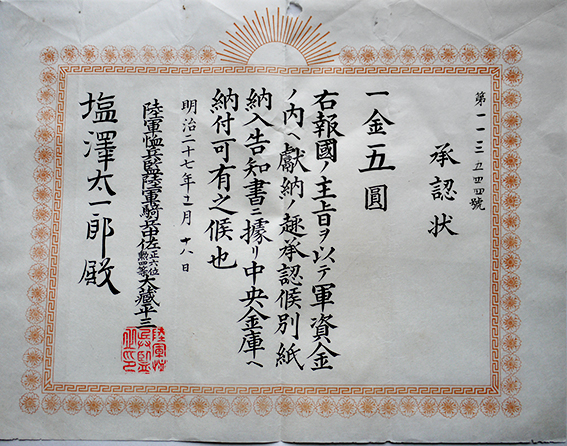 第一一三五四四號
承認状
一金五圓
右報國ノ主旨ヲ以テ軍資金
ノ内ヘ獻納ノ趣承認候別紙
納入告知書ニ據リ中央金庫ヘ
納付可有之候也
明治二十七年 月十八日
陸軍恤兵監陸軍騎兵中佐正六位勲四等大藏平三
塩澤太一郎殿